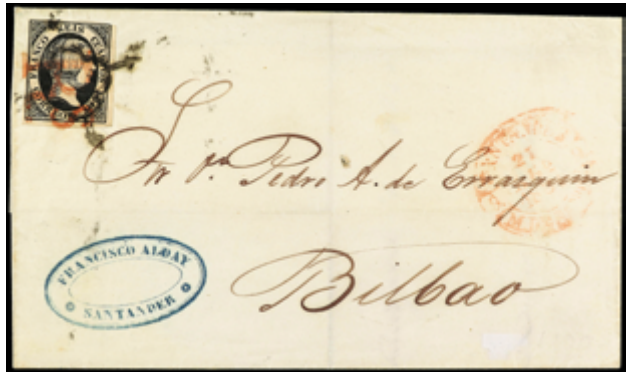 FRANCO SEIS CUARTOS
Sr. Dn. Pedro A. de Errasquin
FRANCISCO ALDAY
SANTANDER
Bilbao